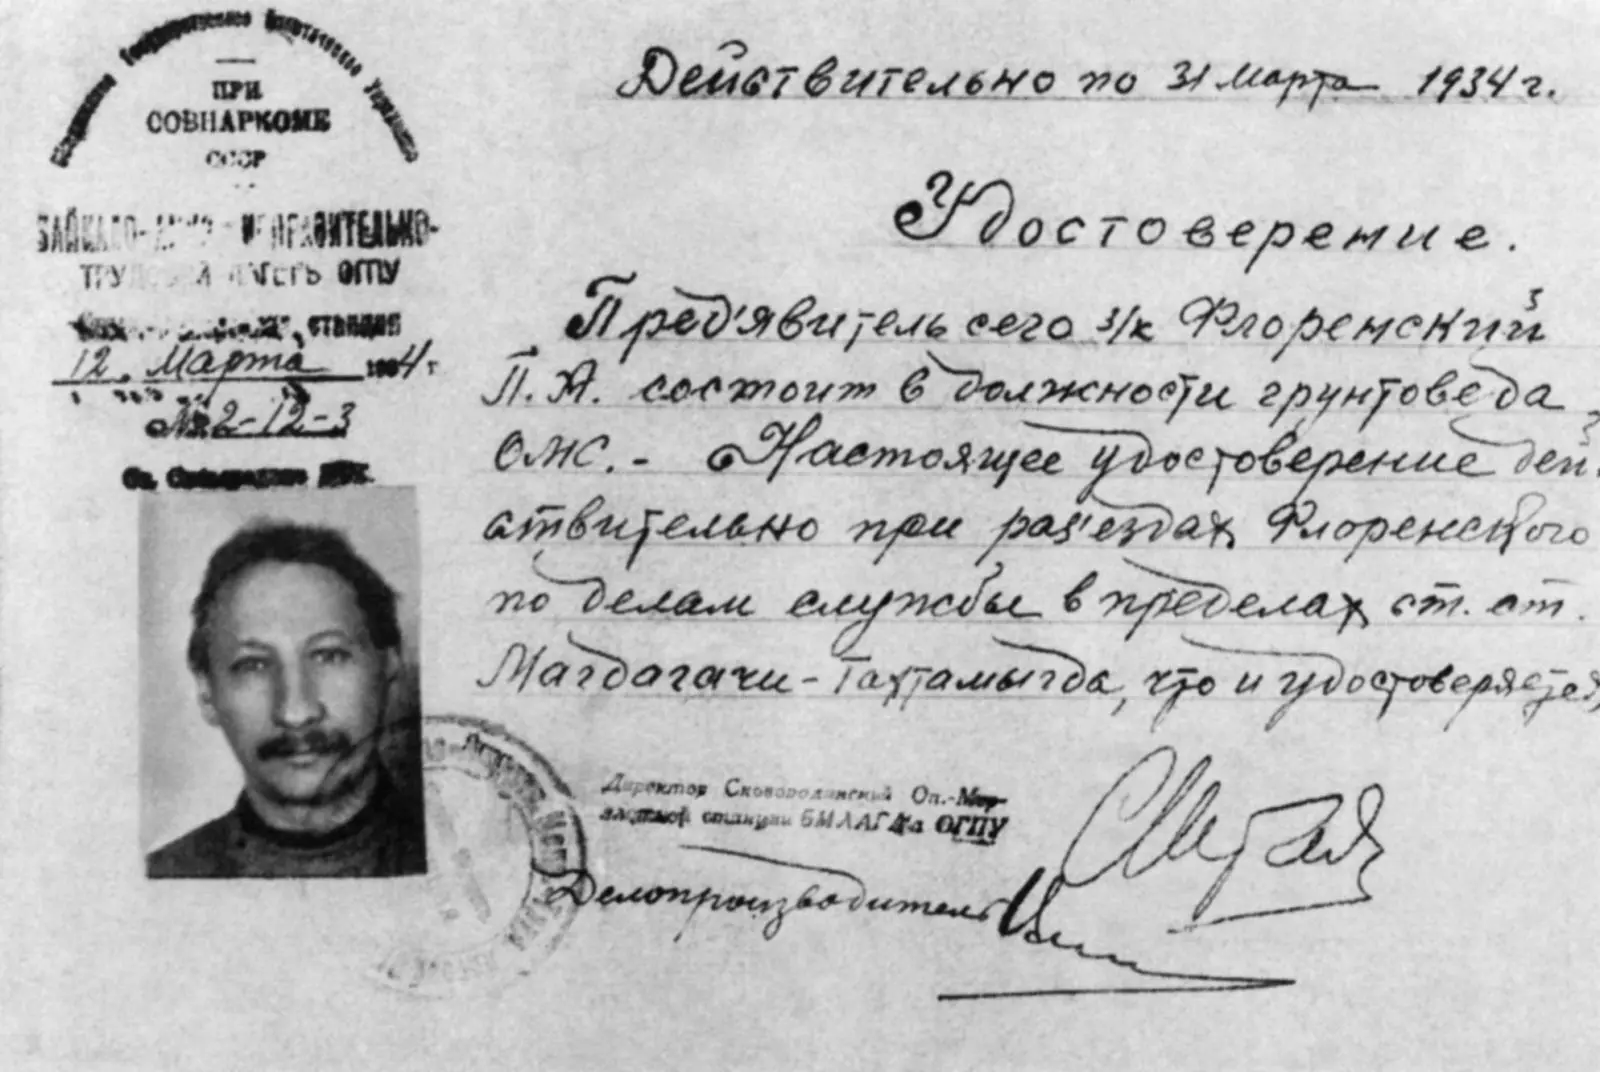 Государственное Политическое Управление
ПРИ
СОВНАРКОМЕ
СССР
БАЙКАЛО- ИСПРАВИТЕЛЬНО-
ТРУДОВОЙ ЛАГЕРЬ ОГПУ
станция
12. Марта 1934 г.
№ 2-12-3
Действительно по 31 марта 1934 г.
Удостоверение.
Пред'явитель сего з/к Флоренский
П. А. состоит в должности грунтоведа
ОМС. - Настоящее удостоверение дей-
ствительно при раз'ездах Флоренского
по делам службы в пределах ст. ст.
Магдагачи - Тахтамыгда, что и удостоверяется
Директор Сковородинский Оп.-Мер-
злотной станции БАМЛАГ'а ОГПУ
Делопроизводитель